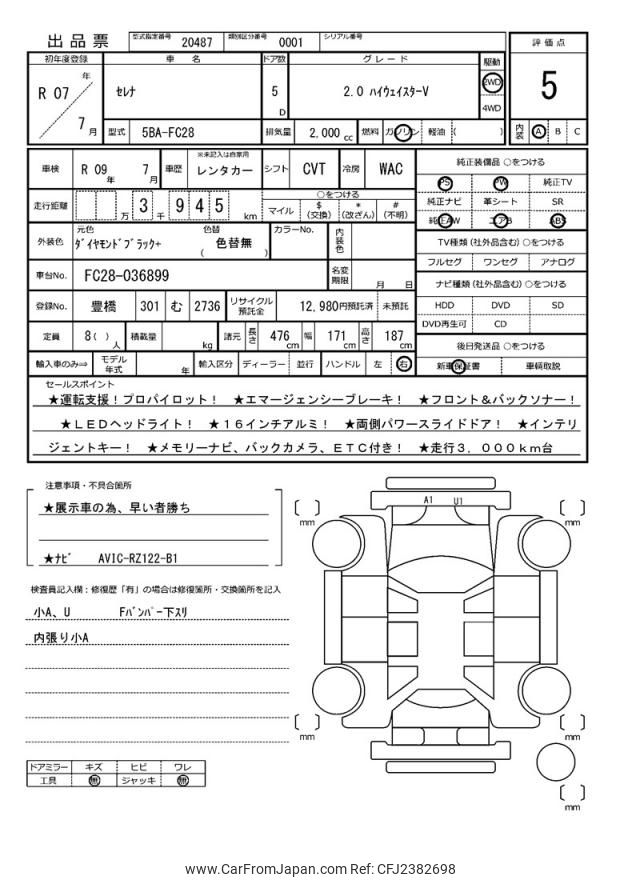 出品票
型式指定番号 20487 類別区分番号 0001 シリアル番号
初年度登録 車名 ドア数 グレード 駆動 評価点
R 07 年 7 月
セレナ 5 D 2.0 ハイウェイスターV 2WD 4WD
5
型式 5BA-FC28 排気量 2,000 cc 燃料 ガソリン 軽油 ( ) 内装 A B C
車検 R 09 年 7 月 車歴 ※未記入は自家用 レンタカー シフト CVT 冷房 WAC
走行距離 万 3 千 9 4 5 km
○をつける
マイル $(交換) *(改ざん) #(不明)
純正装備品 ○をつける
PS PW 純正TV
純正ナビ 革シート SR
純正AW エアB ABS
外装色 元色 ダイヤモンドブラック+ 色替 ( 色替無 ) カラーNo. 内装色
TV種類 (社外品含む) ○をつける
フルセグ ワンセグ アナログ
車台No. FC28-036899 名変期限 月 日
ナビ種類 (社外品含む) ○をつける
HDD DVD SD
DVD再生可 CD
登録No. 豊橋 301 む 2736 リサイクル預託金 12,980円預託済 未預託
定員 8( ) 人 積載量 kg 諸元 長さ 476 cm 幅 171 cm 高さ 187 cm
後日発送品 ○をつける
新車保証書 車輌取説
輸入車のみ⇒ モデル年式 年 輸入区分 ディーラー 並行 ハンドル 左 右
セールスポイント
★運転支援！プロパイロット！ ★エマージェンシーブレーキ！ ★フロント＆バックソナー！
★ＬＥＤヘッドライト！ ★１６インチアルミ！ ★両側パワースライドドア！ ★インテリ
ジェントキー！ ★メモリーナビ、バックカメラ、ＥＴＣ付き！ ★走行３．０００ｋｍ台
注意事項・不具合箇所
★展示車の為、早い者勝ち
★ナビ AVIC-RZ122-B1
検査員記入欄：修復歴「有」の場合は修復箇所・交換箇所を記入
小A、U Fバンパー下スリ
内張り小A
A1 U1
mm
mm
mm
mm
mm
ドアミラー キズ ヒビ ワレ
工具 無 ジャッキ 無
www.CarFromJapan.com Ref: CFJ2382698